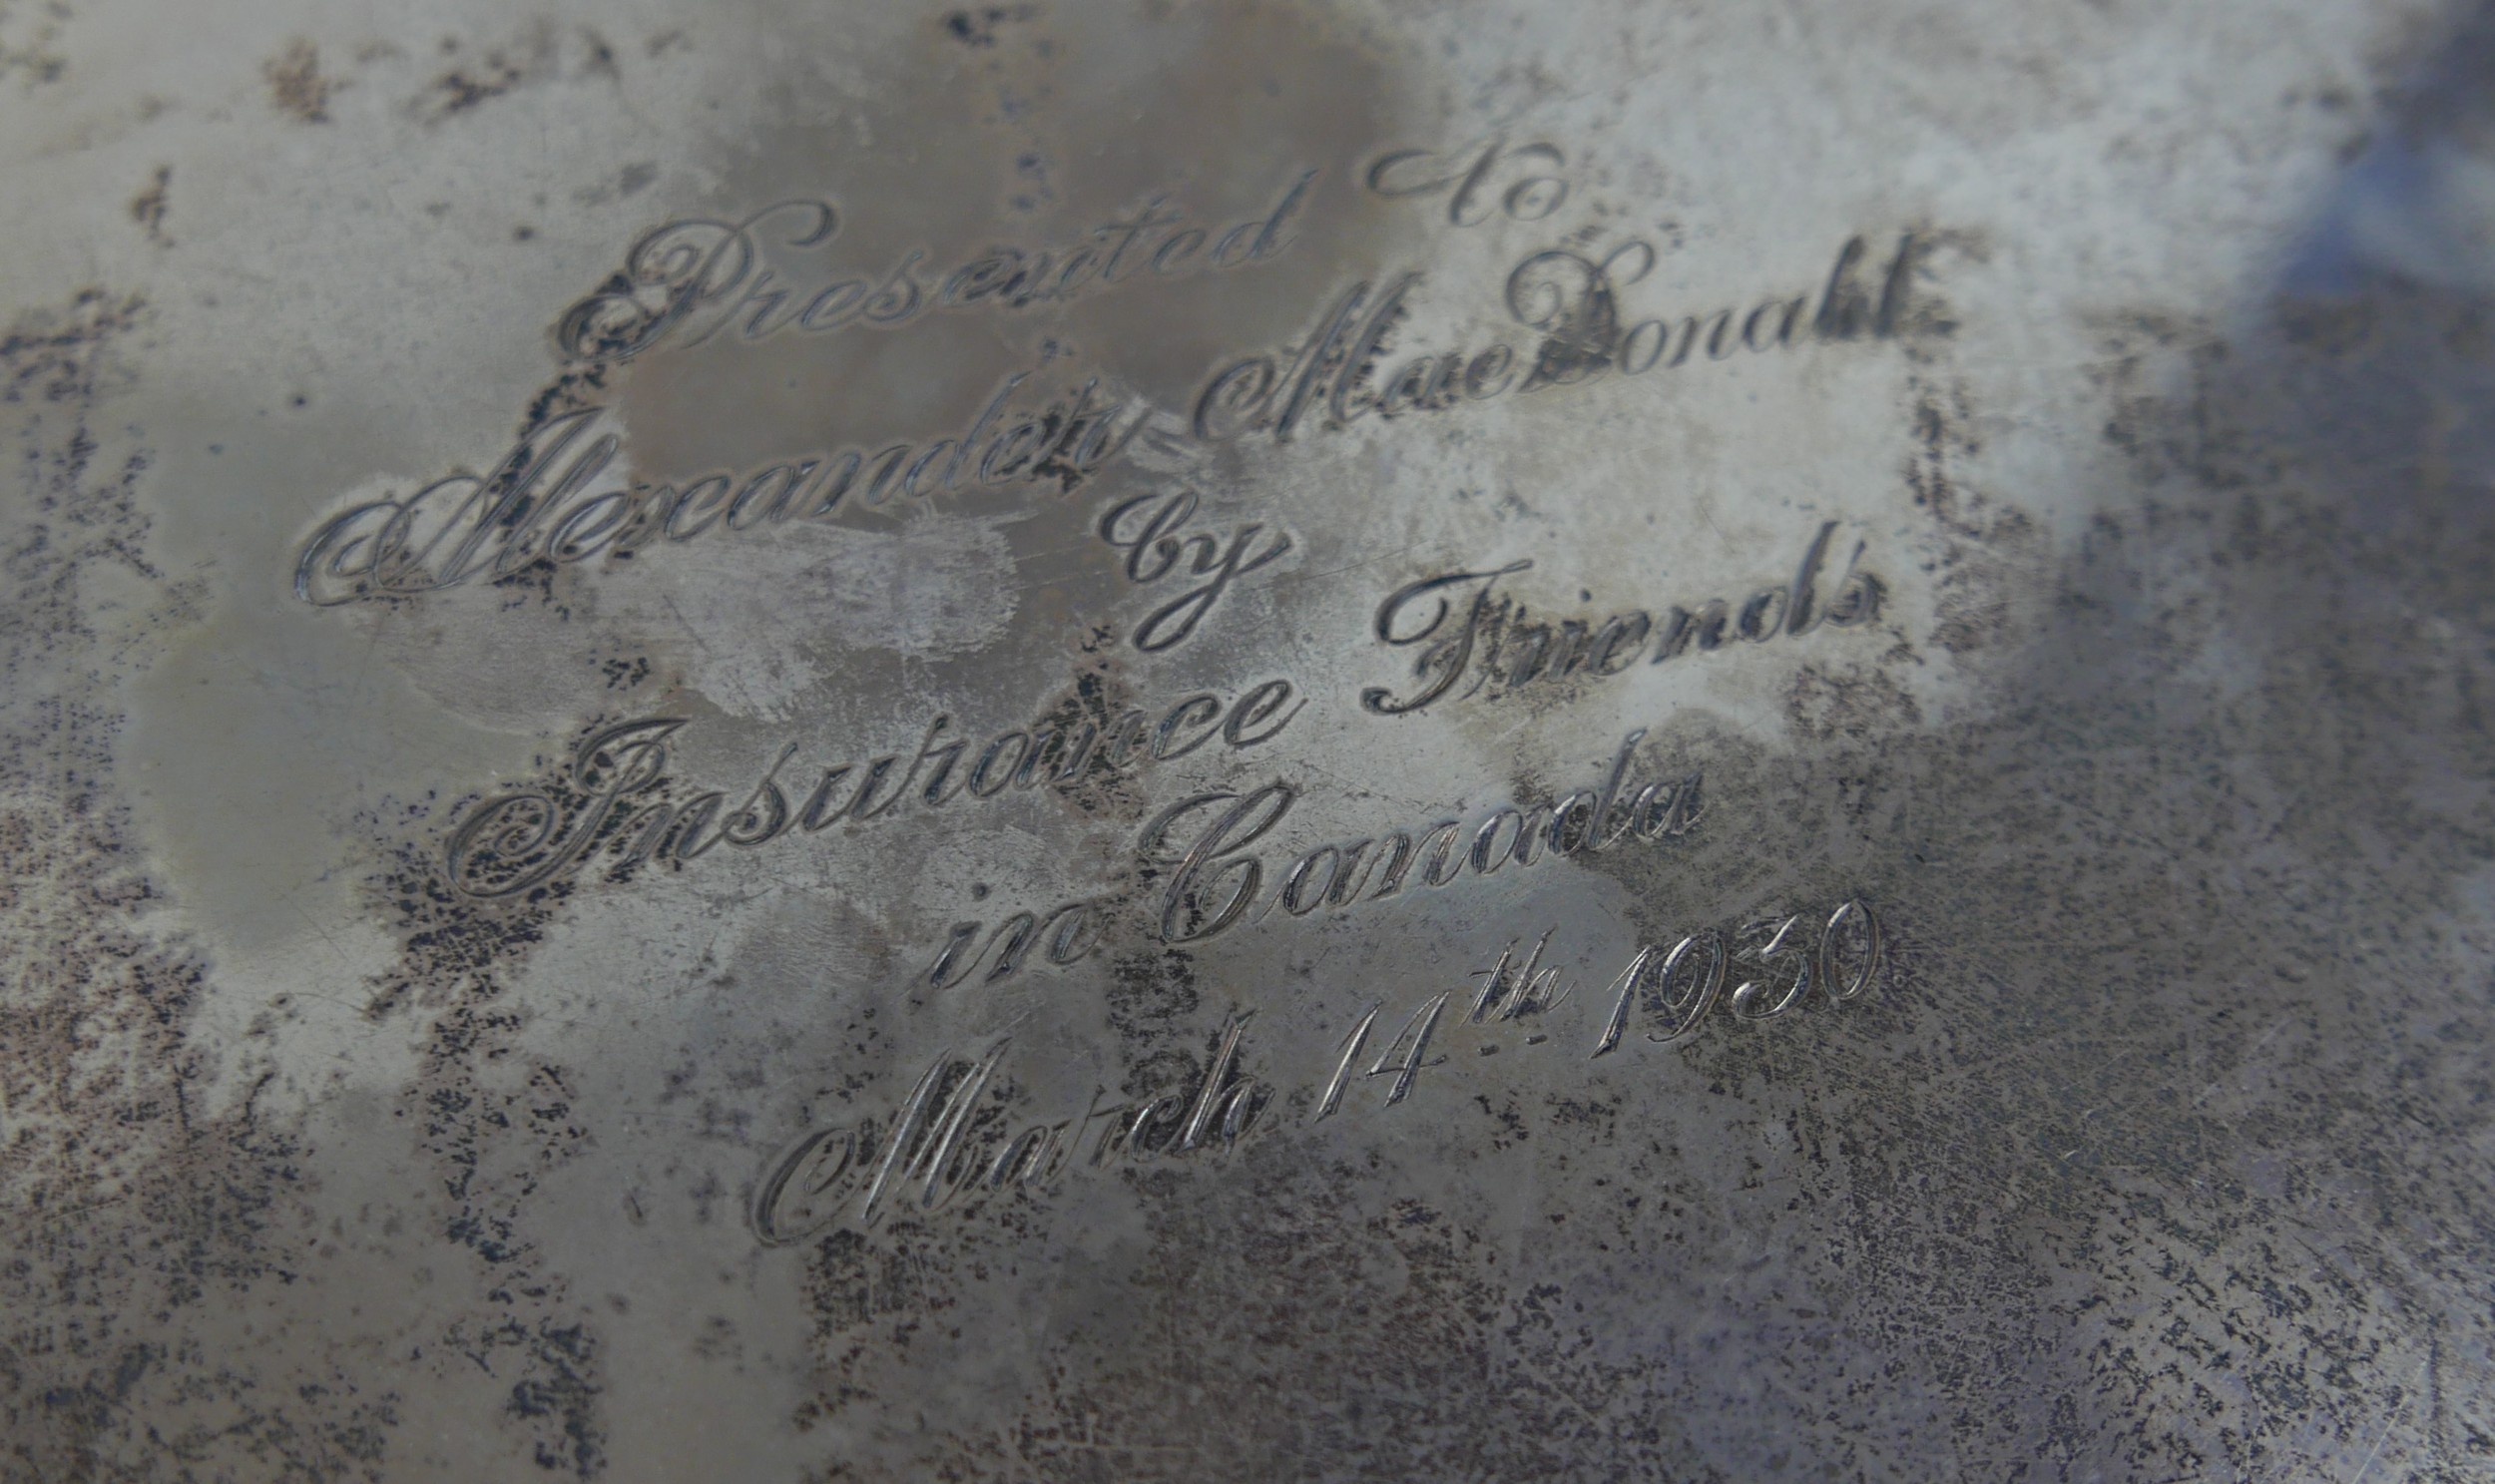 Presented to
Alexander MacDonald
by
Insurance Friends
in Canada
March 14th 1930